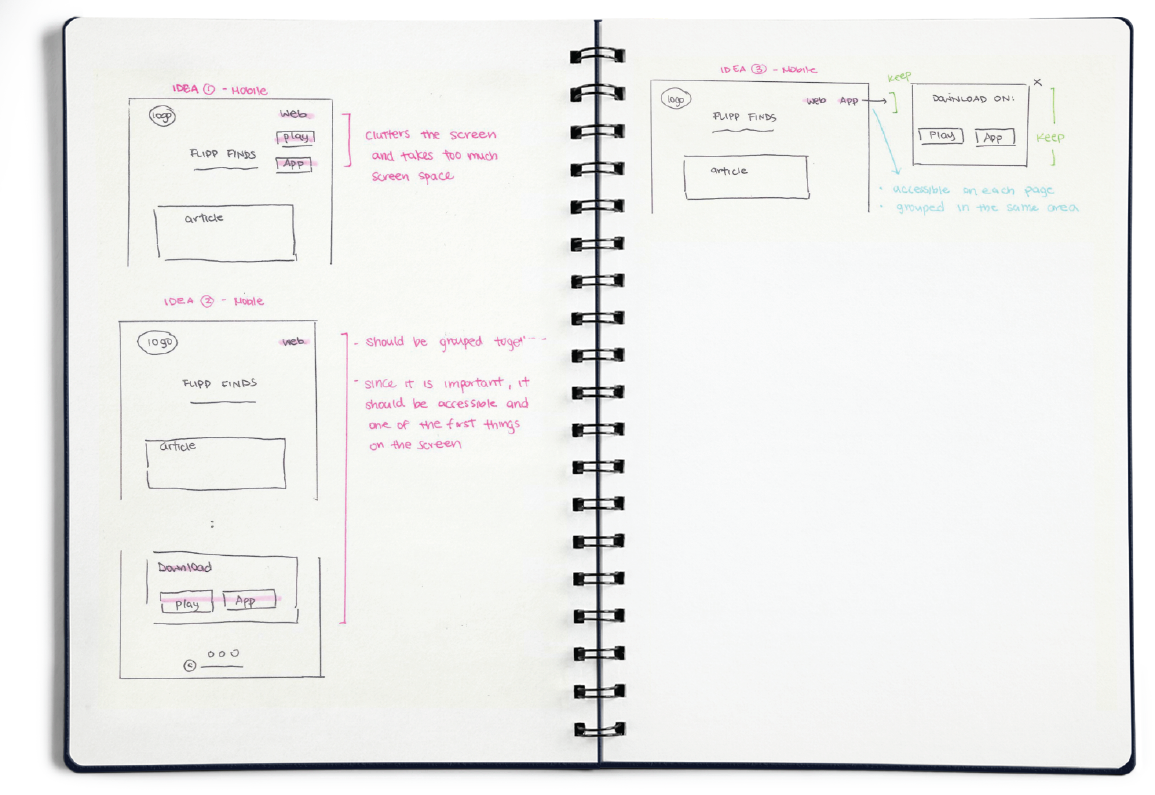 IDEA ① - Mobile
logo
Web
Play
FLIPP FINDS
App
article
clutters the screen
and takes too much
screen space
IDEA ② - Mobile
logo
Web
FLIPP FINDS
article
:
Download
Play
App
©
- should be grouped
- since it is important, it
should be accessible and
one of the first things
on the screen
IDEA ③ - Mobile
logo
Web App
FLIPP FINDS
article
keep
x
DOWNLOAD ON:
Play
App
keep
• accessible on each page
• grouped in the same area